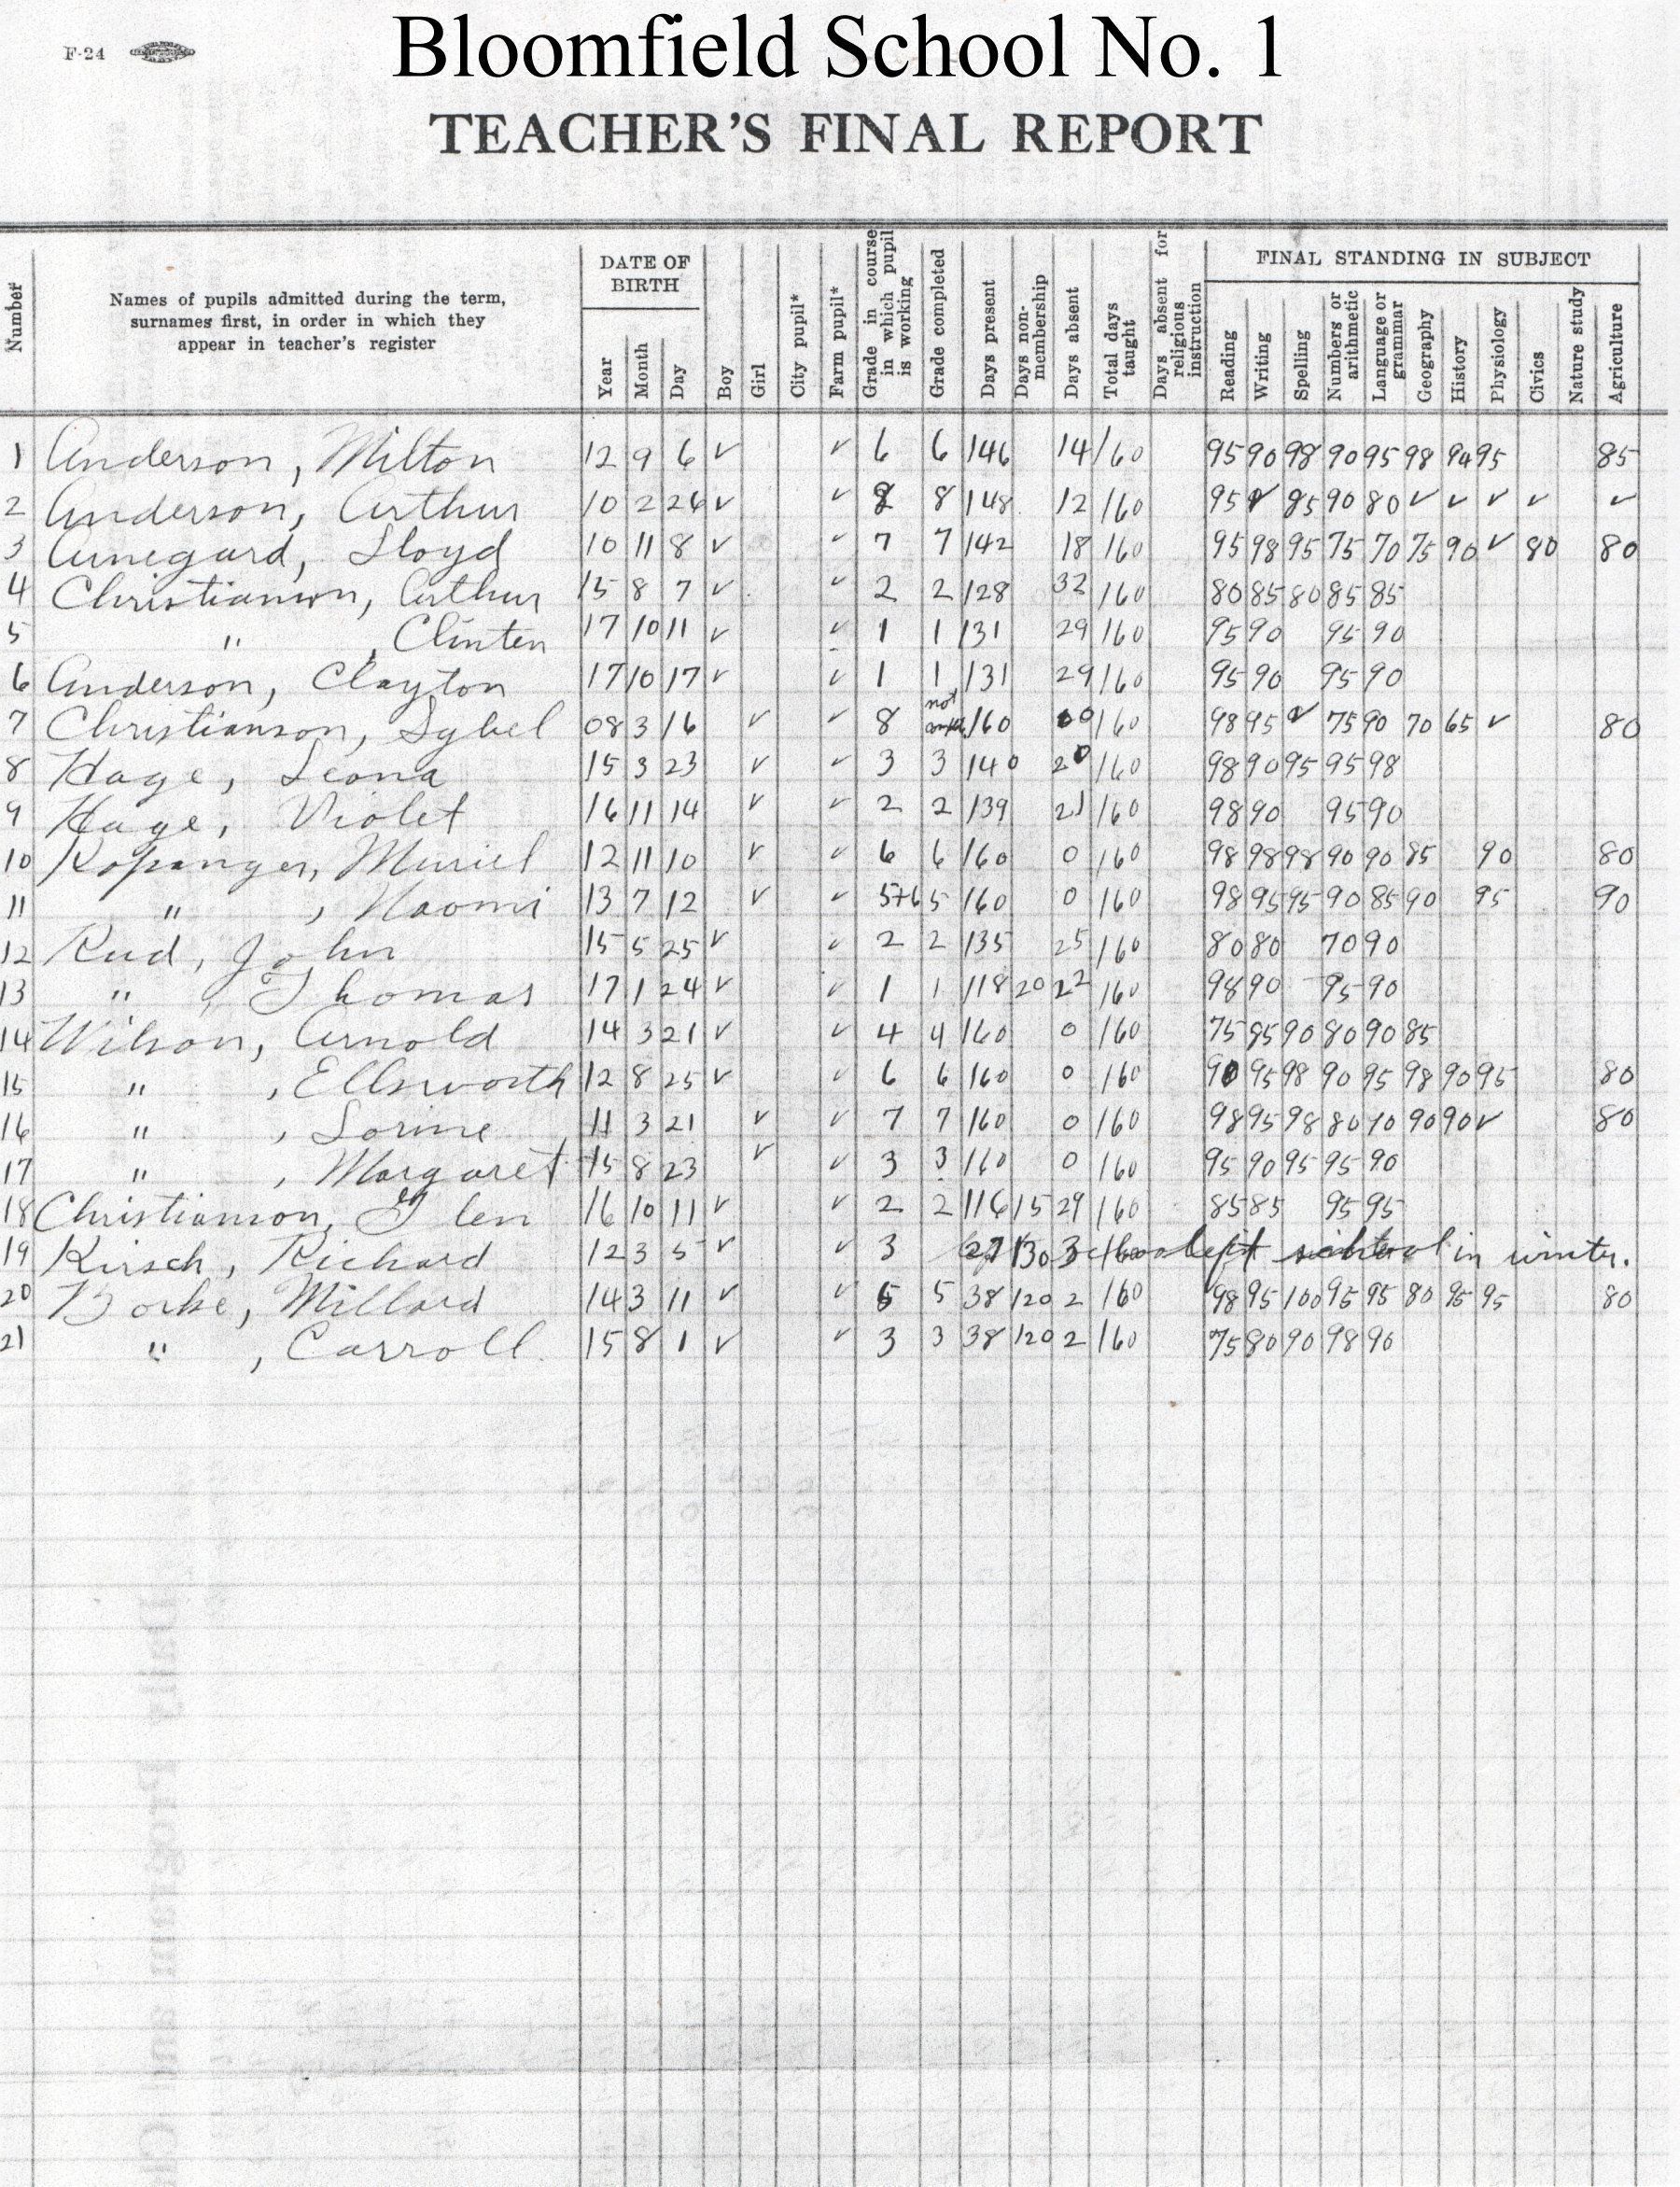 F-24
Bloomfield School No. 1
TEACHER'S FINAL REPORT
Number
Names of pupils admitted during the term, surnames first, in order in which they appear in teacher's register
DATE OF BIRTH
Year Month Day Boy Girl City pupil* Farm pupil* Grade in course in which pupil is working Grade completed Days present Days non-membership Days absent Total days taught Days absent for religious instruction
FINAL STANDING IN SUBJECT
Reading Writing Spelling Numbers or arithmetic Language or grammar Geography History Physiology Civics Nature study Agriculture
1 Anderson, Milton 12 9 6 ✓ ✓ 6 6 146 14 160 95 90 98 90 95 98 94 95 85
2 Anderson, Arthur 10 2 26 ✓ ✓ 8 8 148 12 160 95 ✓ 85 90 80 ✓ ✓ ✓ ✓ ✓
3 Arnegard, Lloyd 10 11 8 ✓ ✓ 7 7 142 18 160 95 98 95 75 70 75 90 ✓ 80 80
4 Christianson, Arthur 15 8 7 ✓ ✓ 2 2 128 32 160 80 85 80 85 85
5 " , Clinten 17 10 11 ✓ ✓ 1 1 131 29 160 95 90 95 90
6 Anderson, Clayton 17 10 17 ✓ ✓ 1 1 131 29 160 95 90 95 90
7 Christianson, Sybel 08 3 16 ✓ ✓ 8 not 160 00 160 98 95 ✓ 75 90 70 65 ✓ 80
8 Hage, Leona 15 3 23 ✓ ✓ 3 3 140 20 160 98 90 95 95 98
9 Hage, Violet 16 11 14 ✓ ✓ 2 2 139 21 160 98 90 95 90
10 Kopanger, Muriel 12 11 10 ✓ ✓ 6 6 160 0 160 98 98 98 90 90 85 90 80
11 " , Naomi 13 7 12 ✓ ✓ 5+6 5 160 0 160 98 95 95 90 85 90 95 90
12 Rud, John 15 5 25 ✓ ✓ 2 2 135 25 160 80 80 70 90
13 " , Thomas 17 1 24 ✓ ✓ 1 1 118 20 22 160 98 90 95 90
14 Wilson, Arnold 14 3 21 ✓ ✓ 4 4 160 0 160 75 85 90 80 90 85
15 " , Ellsworth 12 8 25 ✓ ✓ 6 6 160 0 160 90 95 98 90 95 98 90 95 80
16 " , Lorine 11 3 21 ✓ ✓ 7 7 160 0 160 98 95 98 80 70 90 90 ✓ 80
17 " , Margaret 15 8 23 ✓ ✓ 3 3 160 0 160 95 90 95 95 90
18 Christianson, Glen 16 10 11 ✓ ✓ 2 2 116 15 29 160 85 85 95 95
19 Kirsch, Richard 12 3 5 ✓ ✓ 3 27 130 3 160 left school in winter.
20 Borke, Millard 14 3 11 ✓ ✓ 5 5 38 120 2 160 98 95 100 95 95 80 95 95 80
21 " , Carroll 15 8 1 ✓ ✓ 3 3 38 120 2 160 75 80 90 98 90